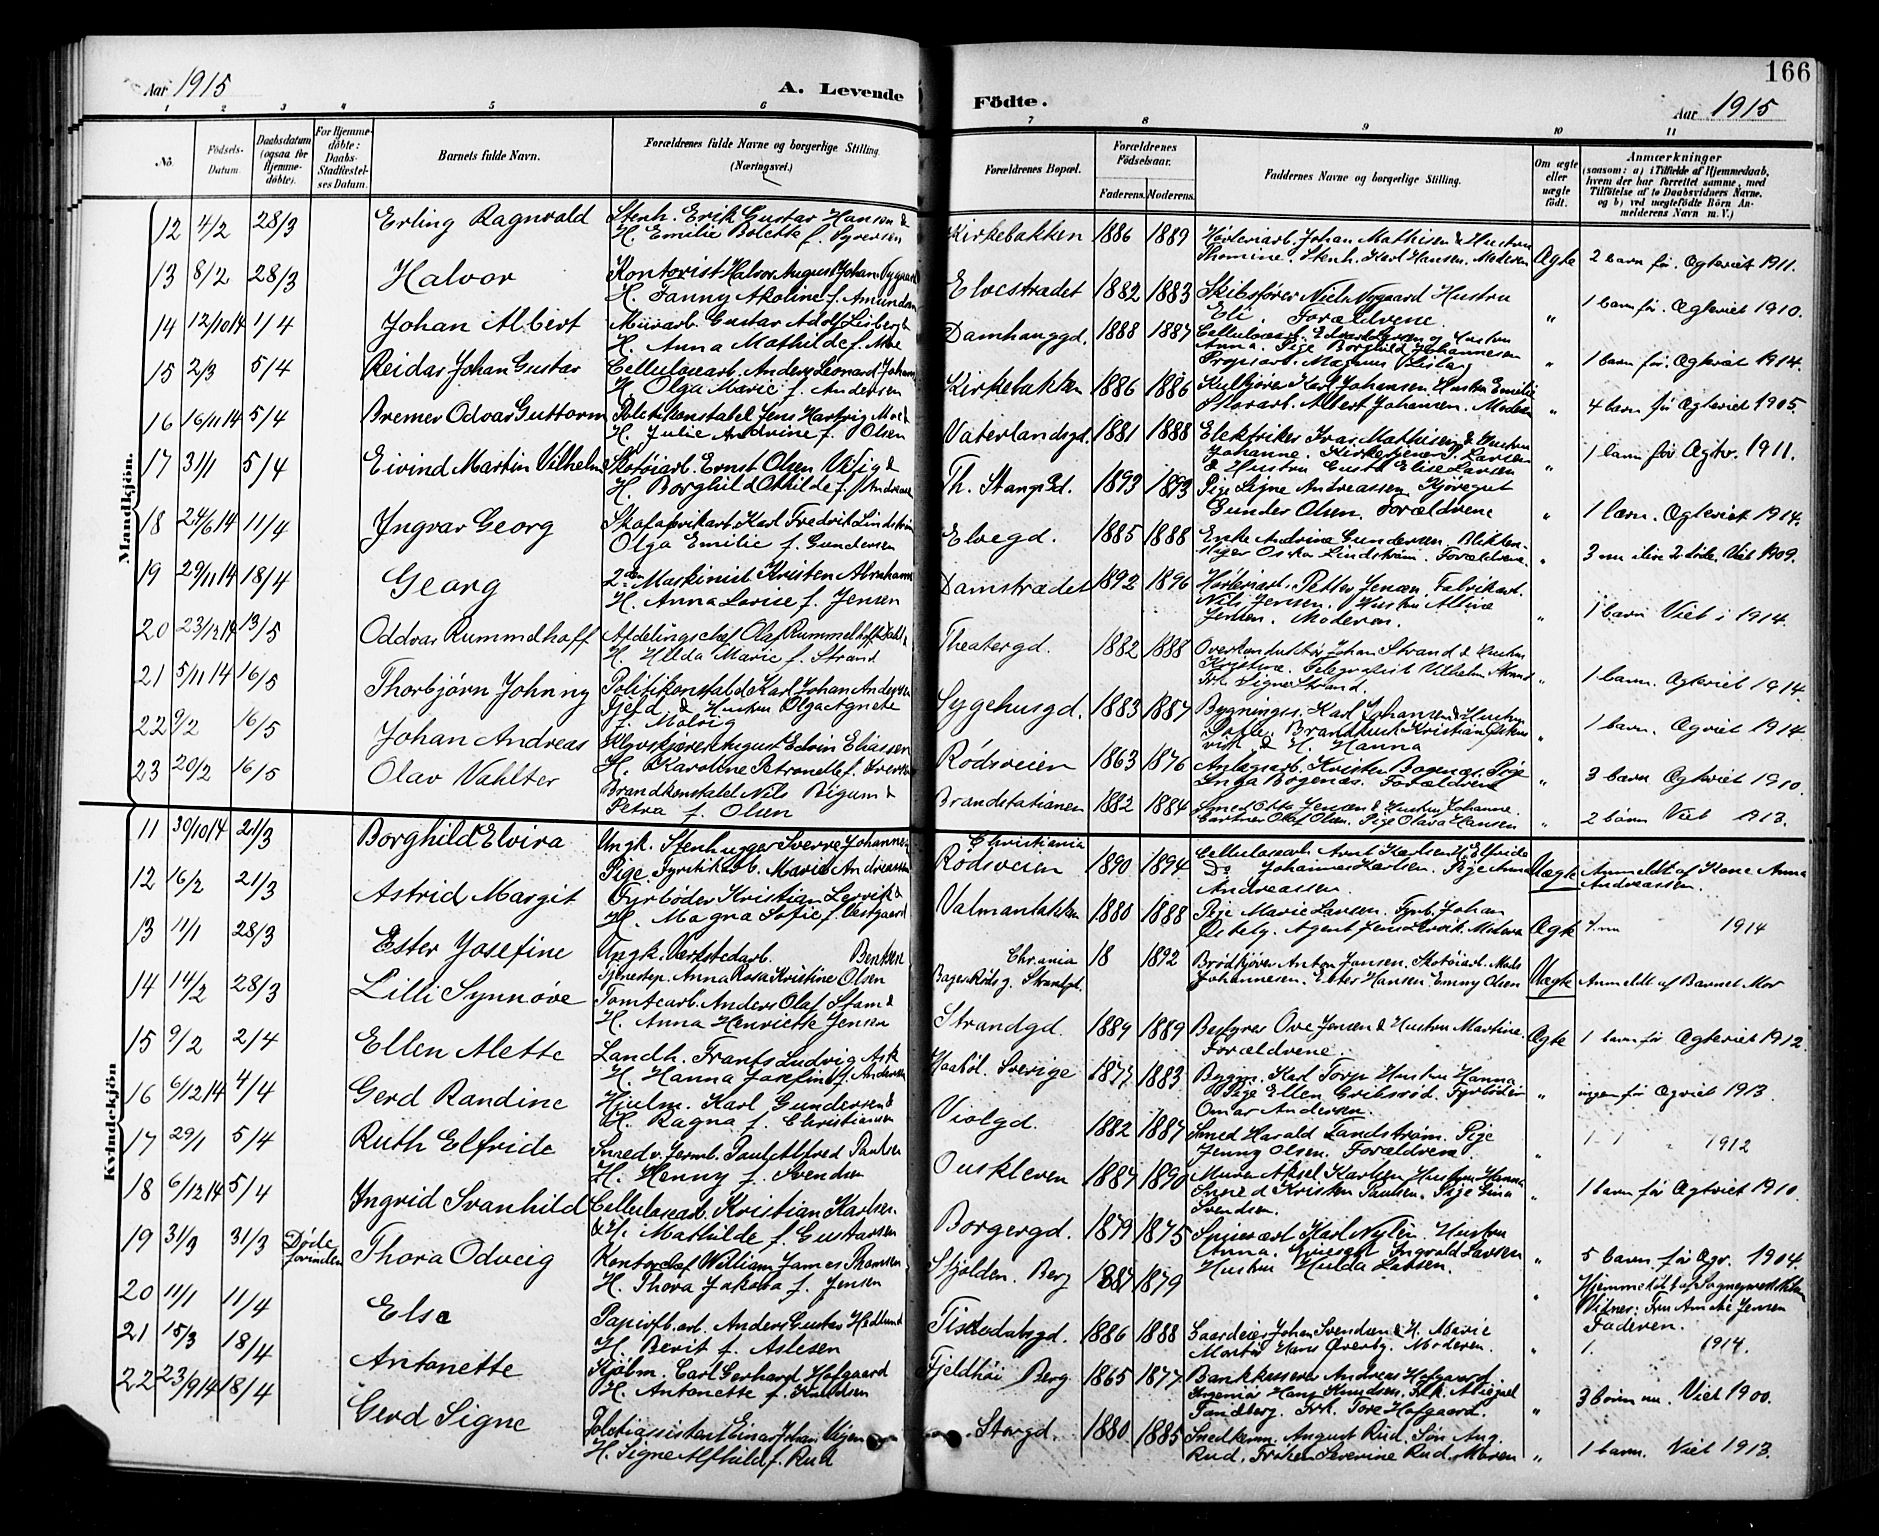 166
Aar 1915
A. Levende
Födte.
Aar 1915
1 2 3 4 5 6 7 8 9 10 11
No.
Födsels-Datum.
Daabsdatum (ogsaa for Hjemme-döbte).
For Hjemme-döbte: Daabs-Stadfæstel-ses Datum.
Barnets fulde Navn.
Forældrenes fulde Navne og borgerlige Stilling. (Næringsvei.)
Forældrenes Bopæl.
Forældrenes Födselsaar.
Faderens. Moderens.
Faddernes Navne og borgerlige Stilling.
Om ægte eller uægte født.
Anmærkninger
(saasom: a) i Tilfælde af Hjemmedaab, hvem der har forrettet samme, med Tilføielse af to Daabsvidners Navne. og b) ved uægtefödte Börn An-melderens Navn m. V.)
Mandkjön.
12 4/2 28/3 Erling Ragnvald Stenh. Erik Gustav Hansen &
H. Emilie Bolette f. Syversen
Kirkebakken 1886 1889 Høvleriarb. Johan Mathisen & Hustru
Thomine. Stenh. Karl Hansen. Moderen Ægte 2 barn før. Ægteviet 1911.
13 8/2 28/3 Halvor Kontorist Halvor August Johan Nygaard
H. Fanny Akoline f. Amundsen
Elvestrædet 1882 1883 Skibsfører Niels Nygaard Hustru
Eli. Forældrene. " 1 barn før. Ægteviet 1910.
14 12/10 14 1/4 Johan Albert Murarb. Gustav Adolf
H. Anna Mathilde f. Moe
Damhanggd. 1888 1887 Anna. Pige Borghild Johannesen
" 1 barn før. Ægteviet 1914.
15 2/3 5/4 Reidar Johan Gustav Cellulosearb. Anders Leonard
H. Olga Marie f. Andersen
Kirkebakken 1886 1886 Karl Johansen Hustru Emilie
Albert Johansen. Moderen " 4 barn før Ægteviet 1905.
16 16/11 14 5/4 Bremer Odvar Guttorm Jens Hartvig Moe &
H. Julie Andrine f. Olsen
Vaterlandsgd. 1881 1888 Elektriker Ivar Mathisen & Hustru
Johanne. Kirketjener P. Larsen
& Hustru Gusta Elise Larsen " 1 barn før Ægtev. 1911.
17 31/1 5/4 Eivind Martin Vilhelm Skotøiarb. Ernst Olsen &
H. Borghild Othilde f. Andreasen
Th. Stangsgd. 1893 1893 Pige Signe Andreassen. Kjøregut
Gunder Olsen. Forældrene " 1 barn. Ægteviet 1914.
18 24/6 14 11/4 Ingvar Georg Karl Fredrik Lindstrøm
Olga Emilie f. Gundersen
Elvegd. 1885 1888 Enke Andrine Gundersen. Blikken-
Oskar Lindstrøm. Forældrene. " 3 nu ilive 2 døde. Viet 1909.
19 29/11 14 18/4 Georg 2den Maskinist Kristen
H. Anna Lovise f. Jensen
Damstrædet 1892 1896 Høvleriarb. Petter Jensen. Fabrikarb.
Nils Jensen. Hustru Alline
Jensen. Moderen. " 1 barn Viet i 1914.
20 23/12 14 13/5 Oddvar Rummelhoff Afdelingschef Olaf Rummelhoff
H. Hilda Marie f. Strand
Theatergd. 1882 1888 Johan Strand & Hustru
Kristine. Telegrafist Vilhelm
Frk. Signe Strand. " 1 barn. Ægteviet 1914.
21 5/11 14 16/5 Thorbjørn Johnny Politikonstabel Karl Johan Andersen
Fjeld & Hustru Olga Agnete
f. Malvig
Sygehusgd. 1883 1887 Bygningss. Karl Johansen & Hustru
Sofie.
& H. Hanna " 1 barn. Ægviet 1914
22 9/2 16/5 Johan Andreas August Edvin Eliassen
H. Karoline Petronelle f.
Rødsveien 1863 1876 Anlægsarb. Kristen Bogenæs. Pige
Inga Bogenæs. Forældrene " 3 barn Ægteviet 1910.
23 20/2 16/5 Olav Vahlter Brandkonstabel Nils Bigum &
Petra f. Olsen
Brandstationen 1882 1884 Smed Otto Jensen & Hustru Johanne.
Gartner Olaf Olsen. Pige Olava Hansen " 2 børn Viet 1913.
Kvindekjön
11 30/10 14 21/3 Borghild Elvira Ungk. Stenhugger Sverre Johannesen
Pige. Fyrstikarb. Marie Andreassen
Christiania
Rødsveien 1890 1894 Cellulosearb. Arnt Karlsen H. Elfride
Do Johannes Karlsen. Pige Anna
Andreassen. Uægte Anmeldt af Kone Anna
Andreassen.
12 16/2 21/3 Astrid Margit Fyrbøder Kristian Lervik &
H. Magna Sofie f. Vestgaard
1880 1888 Pige Marie Larsen. Fyrb. Johan
Østeby. Agent Jens Lervik. Moderen Ægte 4 nu 1914
13 11/1 28/3 Ester Josefine Ungk. Værkstedarb. Bentsen
Tjenestep. Anna Rosa Kristine Olsen
Chr.ania
18 1892 Brødkjører Anton Jansen. Skotøiarb. Mads
Johannesen. Ester Hansen. Emmy Olsen Uægte Anmeldt af Barnet Mor
14 14/2 28/3 Lilli Synnøve Tomtearb. Anders Olaf Stam &
H. Anna Henriette Jensen
Strandgd. 1889 1889 Bestyrer Ove Jensen & Hustru Martine
Forældrene. Ægte 1 barn før Ægteviet 1912.
15 9/2 2/4 Ellen Alette Landh. Frants Ludvig Ask
H. Hanna Josefine f. Andersen
Sverige 1877 1883 Byggm. Karl Torp Hustru Hanna
Pige Ellen Eriksrød. Fyrbøder
Omar Andersen. " ingen før Ægviet 1913.
16 6/12 14 4/4 Gerd Randine Hjulm. Karl Gundersen &
H. Ragna f. Christiansen
Violgd. 1882 1887 Smed Harald Tandstrøm. Pige
Jenny Olsen. Forældrene. " 1 1 " 1912
17 29/1 5/4 Ruth Elfride Snedv. Paul Alfred Paulsen
H. Henny f. Svendsen
Ouskleven 1887 1890 Murer Aksel Karlsen Hustru Hanna
Kristen Paulsen. Pige Gina
Svendsen. " 1 barn før Ægteviet 1910.
18 6/12 14 5/4 Ingrid Svanhild Cellulosearb. Kristian Karlsen
& H. Mathilde f. Gustavsen
Borgergd. 1879 1875 Karl Nylén. Hustru
Anna. Ingvald Larsen
Hustru Hulda Larsen. " 5 barn før Ægv. 1904.
19 31/3 31/3 Døde Thora Odveig Kontorchef William James Thomsen
H. Thora Jakoba f. Jensen
Skjolden. Berg 1887 1879 " Hjemmedøbt af Sogneprest
Vidner: Fru Amalie Jensen
Faderen.
20 11/1 11/4 Else Papirfb.arb. Anders Gustav Hedlund
H. Berit f. Aslesen
Tistedalsgd. 1886 1888 Gaardeier Johan Svendsen & H. Marie
Hans Øverby. Moderen. " 1. 1914.
21 15/3 18/4 Antonette Carl Gerhard Hofgaard
H. Antonette f. Knudsen
Fjeldhøi Berg 1865 1877 Bankkasserer Andreas Hofgaard.
Hans Knudsen. Frk.
Tandberg. Frk. Tore Hofgaard. " 3 børn nu. Viet 1900.
22 23/9 14 18/4 Gerd Signe Politiassistent Einar Johan
H. Signe Alfhild f. Rud
Storgd. 1880 1885 Snedkerm. August Rud. Søn Aug.
Rud. Frøken Severine Rud. Moren " 1 barn. Viet 1913.